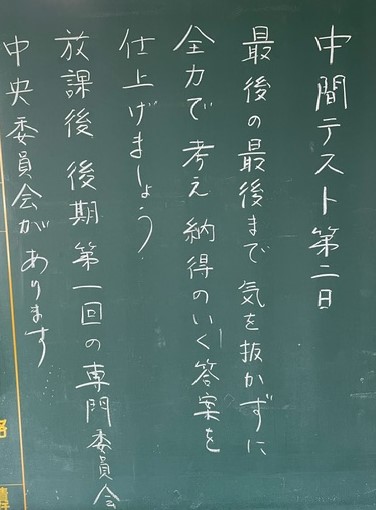 中間テスト第二日
最後の最後まで気を抜かずに
全力で考え納得のいく答案を
仕上げましょう。
放課後 後期第一回の専門委員会
中央委員会があります